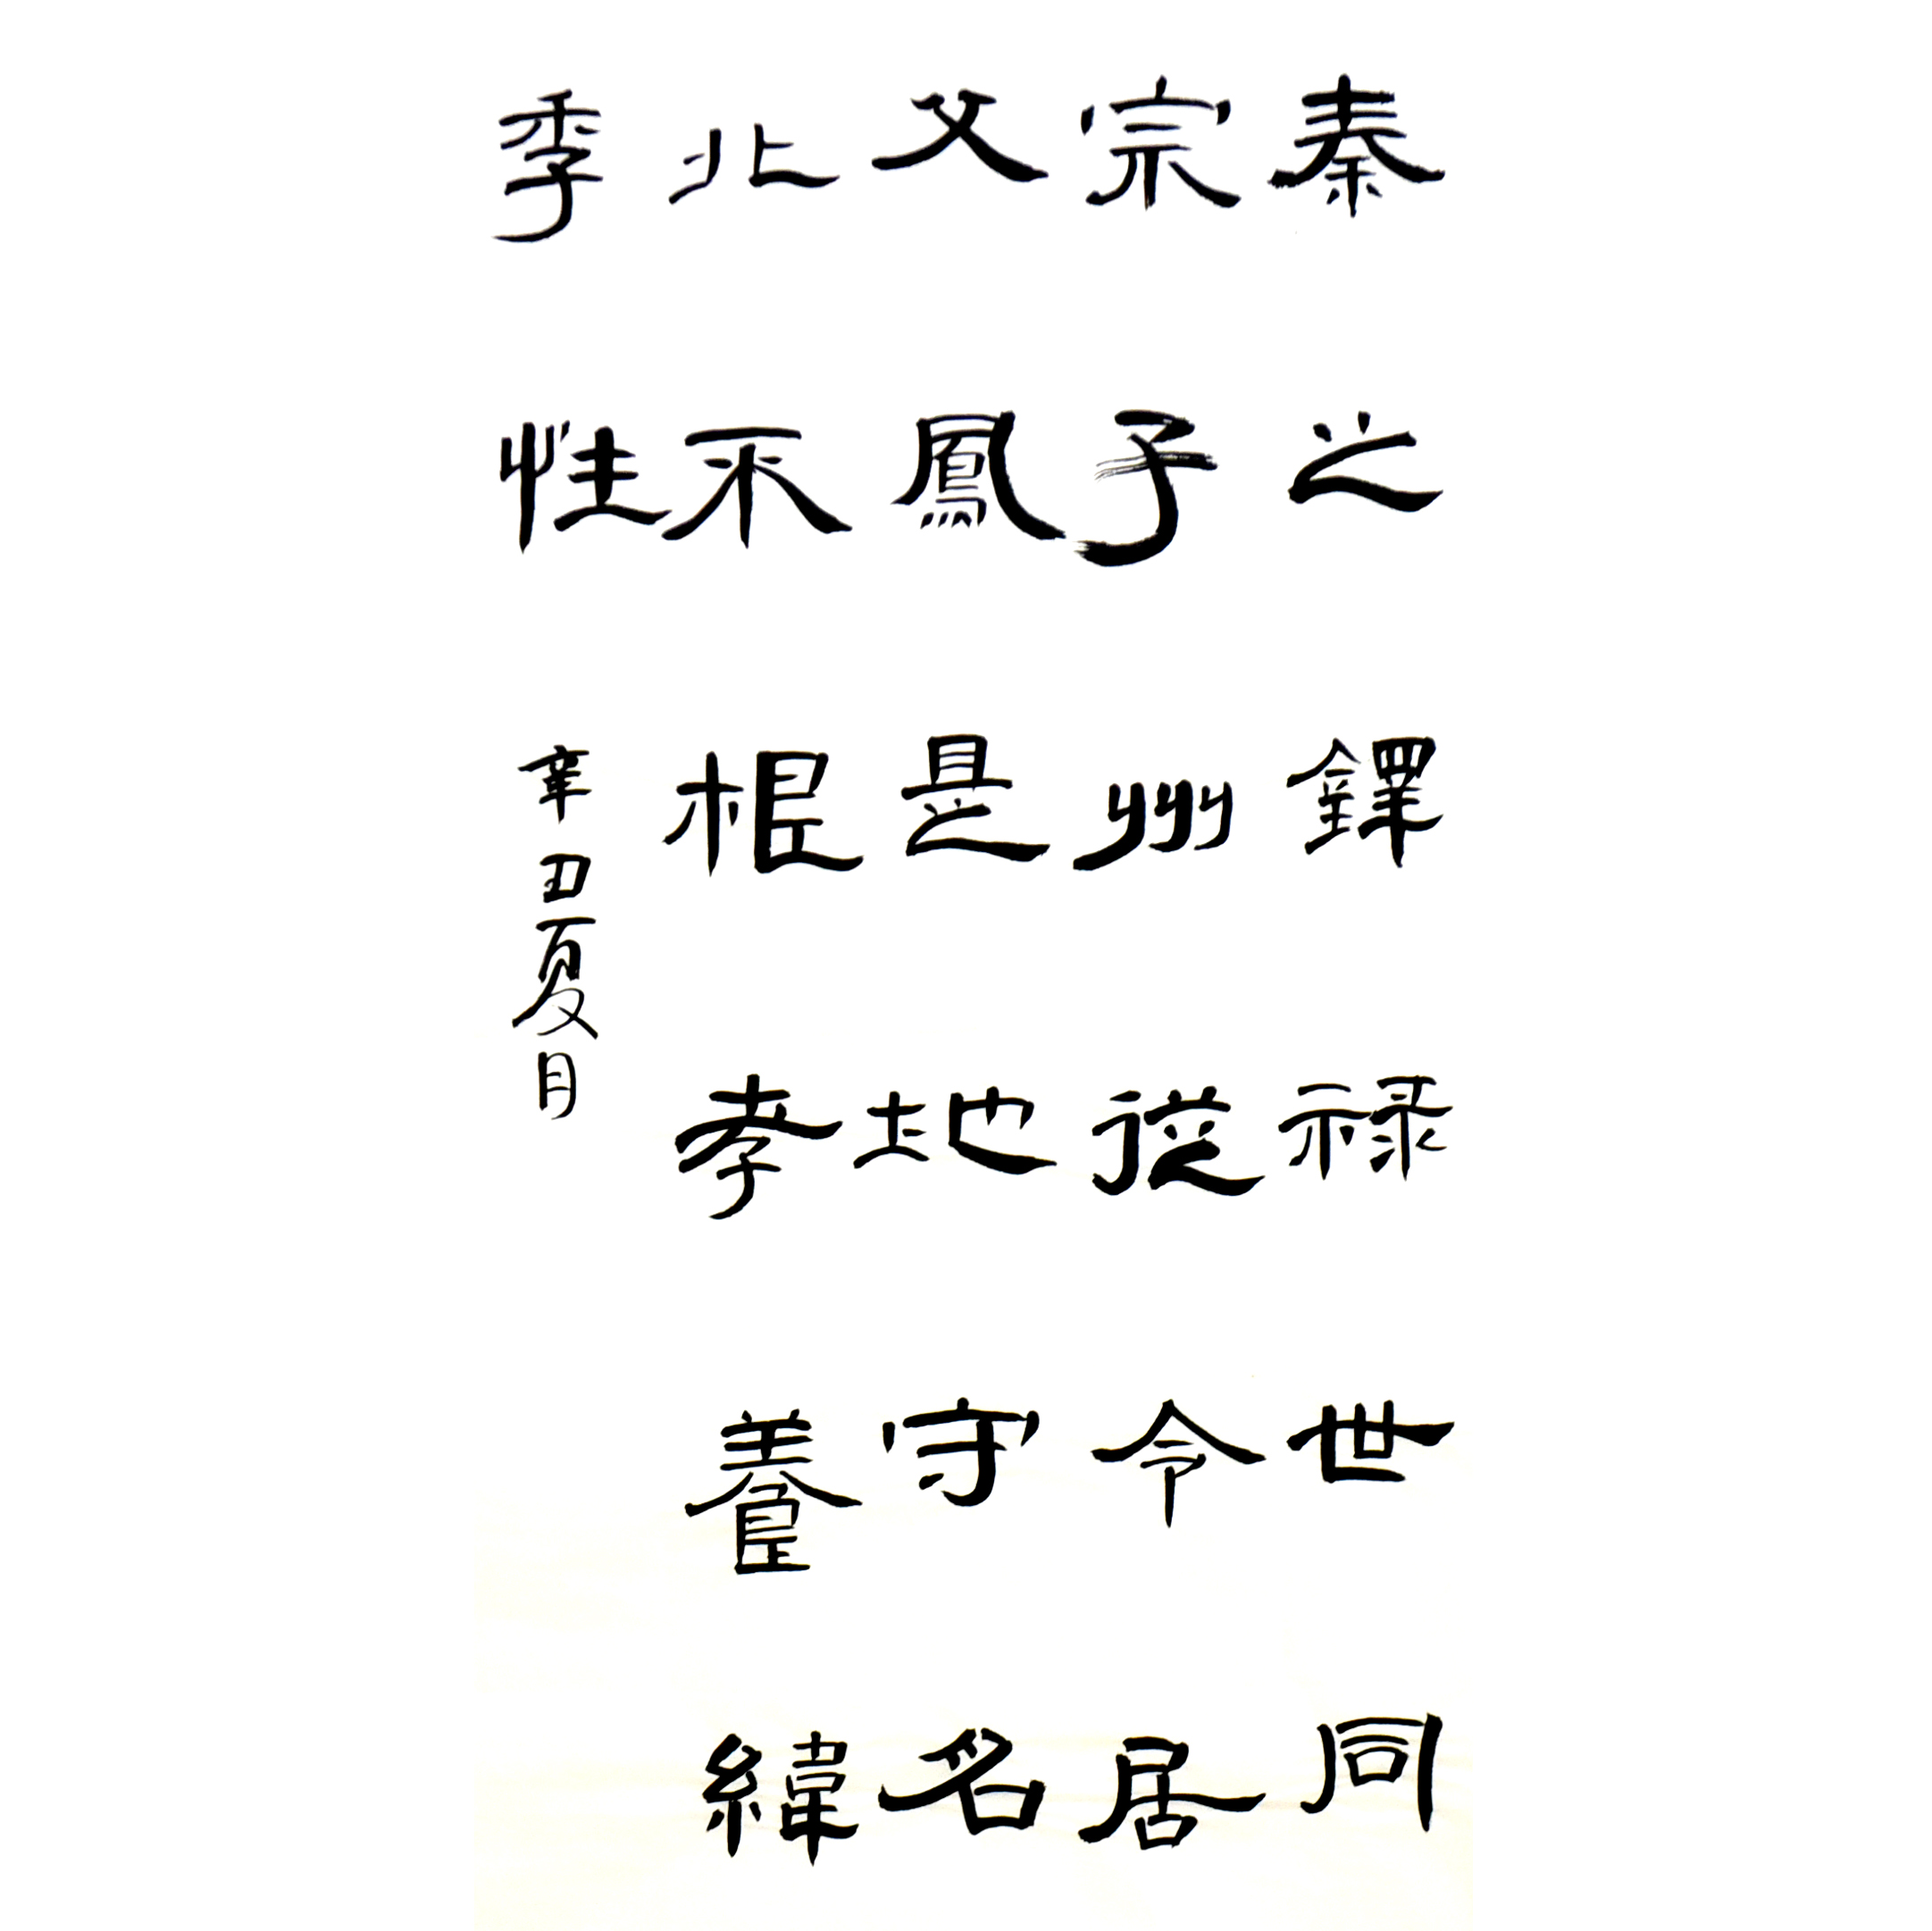 秦之鐸禄世同
宗子州從令居
父鳳是地守名
北不根孝養緯
季性
辛丑夏月